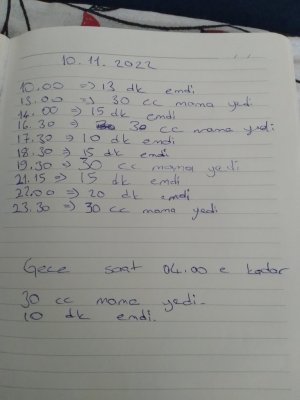 10.11.2022
10.00 => 13 dk emdi
13.00 => 30 cc mama yedi
14.00 => 15 dk emdi
16.30 => 30 cc mama yedi
17.30 => 10 dk emdi
18.30 => 15 dk emdi
19.30 => 30 cc mama yedi
21.15 => 15 dk emdi
22.00 => 20 dk emdi
23.30 => 30 cc mama yedi
Gece saat 04.00 e kadar
30 cc mama yedi.
10 dk emdi.